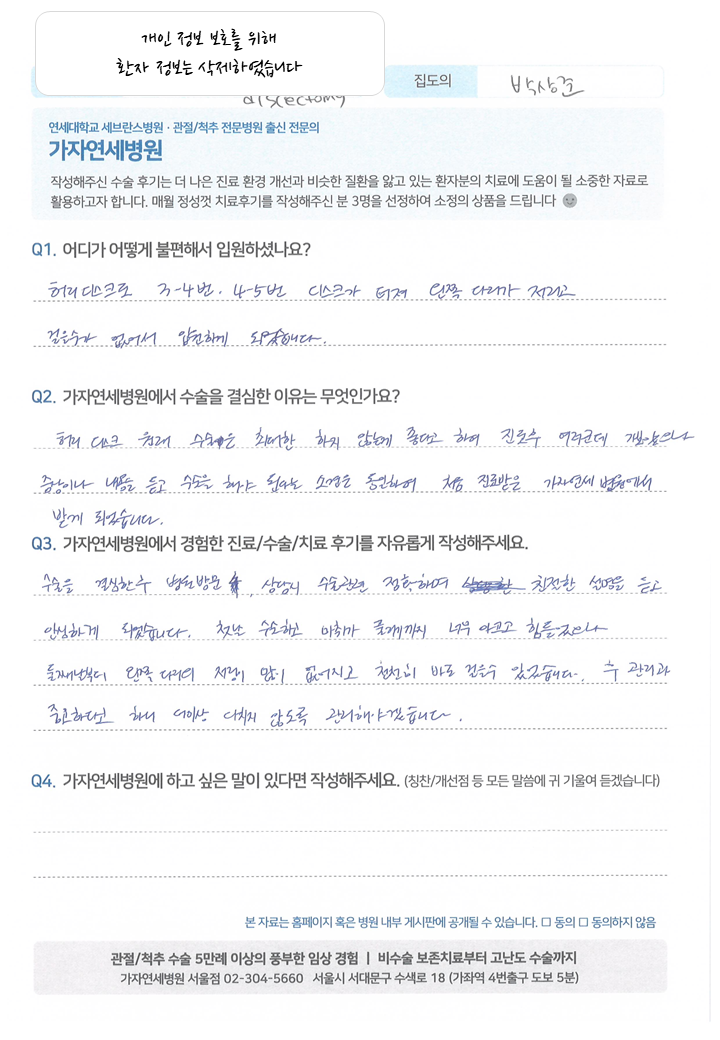 개인 정보 보호를 위해
환자 정보는 삭제하였습니다
discectomy
집도의 박상준
연세대학교 세브란스병원 · 관절/척추 전문병원 출신 전문의
가자연세병원
작성해주신 수술 후기는 더 나은 진료 환경 개선과 비슷한 질환을 앓고 있는 환자분의 치료에 도움이 될 소중한 자료로
활용하고자 합니다. 매월 정성껏 치료후기를 작성해주신 분 3명을 선정하여 소정의 상품을 드립니다
Q1. 어디가 어떻게 불편해서 입원하셨나요?
허리디스크로 3-4번. 4-5번 디스크가 터져 왼쪽 다리가 저리고
걸을수가 없어서 입원하게 되었습니다.
Q2. 가자연세병원에서 수술을 결심한 이유는 무엇인가요?
허리 디스크 원래 수술은 최대한 하지 않는게 좋다고 하여 진료후 여러군데
증상이나 내용을 듣고 수술을 해야 된다는 소견은 동일하여 처음 진료받은 가자연세 병원에서
받게 되었습니다.
Q3. 가자연세병원에서 경험한 진료/수술/치료 후기를 자유롭게 작성해주세요.
수술을 결심한후 병원방문, 상담시 수술관련 정확하며 친절한 설명을 듣고
안심하게 되었습니다. 첫날 수술하고 마취가 풀릴때까지 너무 아프고 힘들었으나
둘째날부터 왼쪽 다리의 저림이 많이 없어지고 천천히 바로 걸을수 있었습니다. 후 관리가
중요하다고 하니 더이상 다치지 않도록 관리해야겠습니다.
Q4. 가자연세병원에 하고 싶은 말이 있다면 작성해주세요. (칭찬/개선점 등 모든 말씀에 귀 기울여 듣겠습니다)
본 자료는 홈페이지 혹은 병원 내부 게시판에 공개될 수 있습니다. □ 동의 □ 동의하지 않음
관절/척추 수술 5만례 이상의 풍부한 임상 경험 | 비수술 보존치료부터 고난도 수술까지
가자연세병원 서울점 02-304-5660 서울시 서대문구 수색로 18 (가좌역 4번출구 도보 5분)